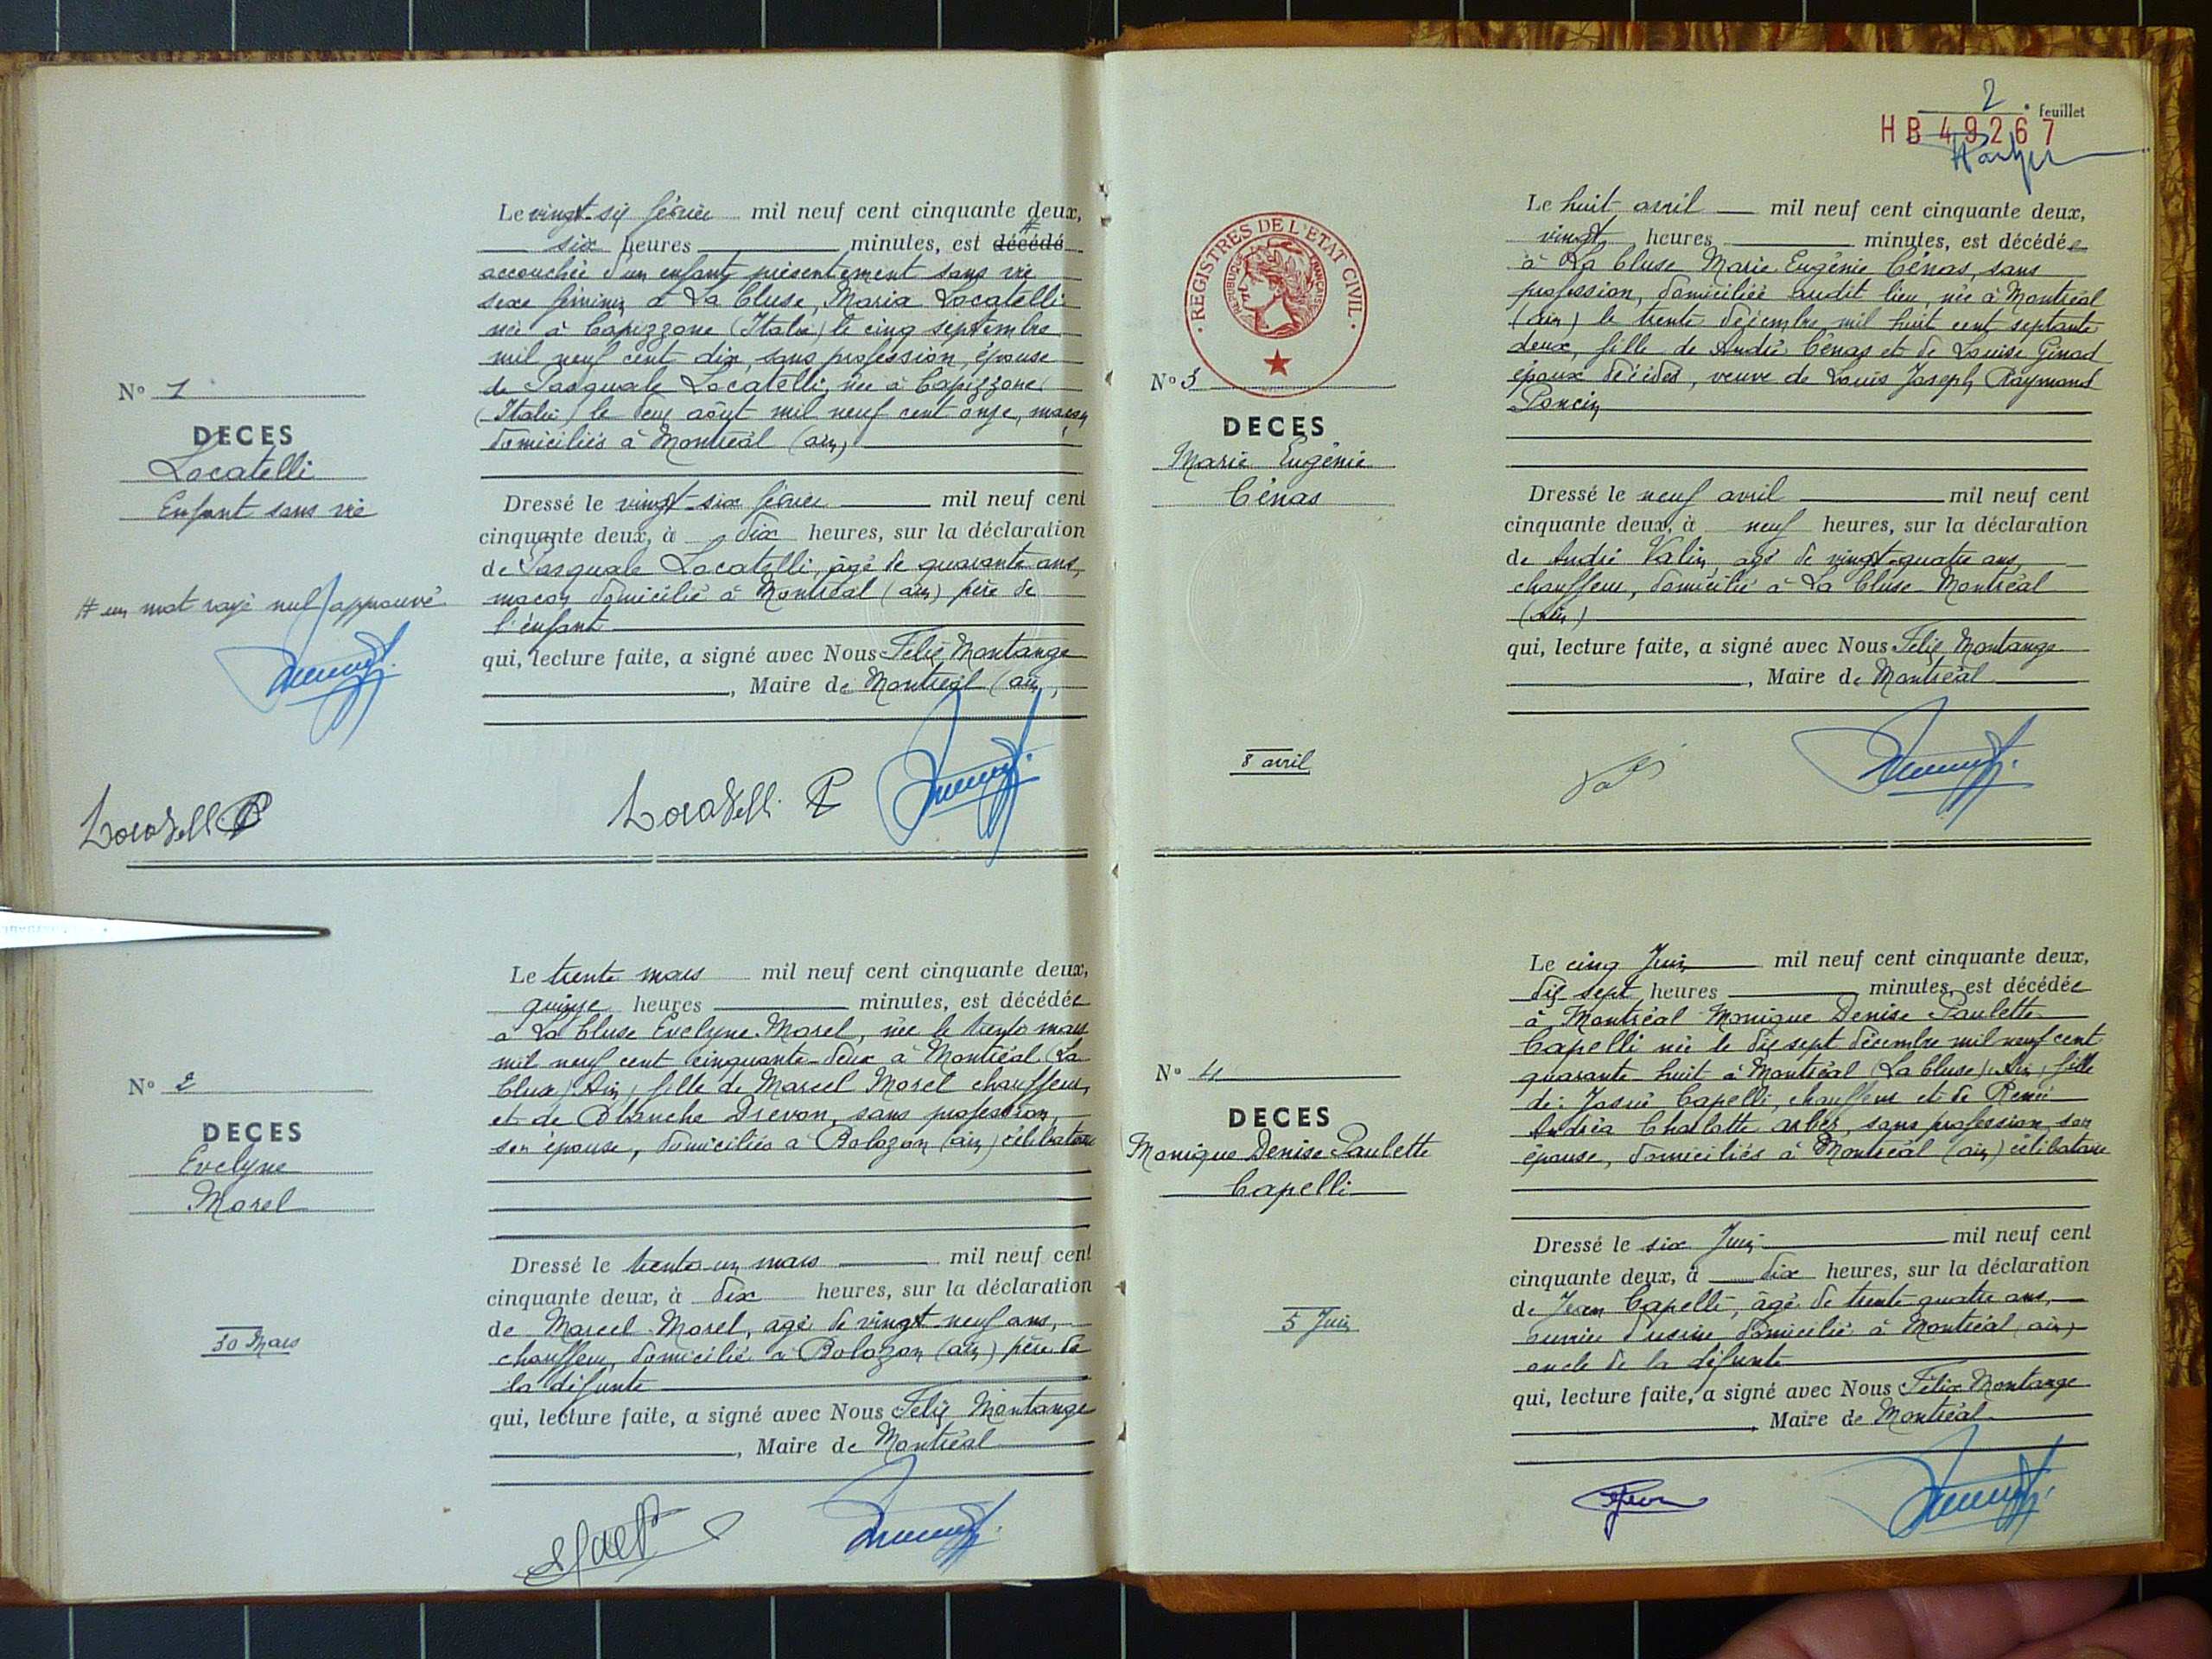 Le vingt-six février mil neuf cent cinquante deux,
six heures minutes, est décédé #
accouchée d'un enfant présentement sans vie
sexe féminin à La Cluse, Maria Locatelli
née à Capizzone (Italie) le cinq septembre
mil neuf cent dix, sans profession, épouse
de Pasquale Locatelli, né à Capizzone
(Italie) le deux août mil neuf cent onze, maçon,
domiciliés à Montréal (ain)
N° 1
DECES
Locatelli
Enfant sans vie
Dressé le vingt-six février mil neuf cent
cinquante deux, à dix heures, sur la déclaration
de Pasquale Locatelli, âgé de quarante ans,
maçon, domicilié à Montréal (ain) père de
l'enfant
qui, lecture faite, a signé avec Nous Félix Montange
, Maire de Montréal (ain)
# un mot rayé nul approuvé
Locatelli P
Locatelli P
Le trente mars mil neuf cent cinquante deux,
quinze heures minutes, est décédée
à La Cluse Evelyne Morel, née le trente mars
mil neuf cent cinquante-deux à Montréal (La
Cluse) Ain, fille de Marcel Morel chauffeur,
et de Blanche Drevon, sans profession,
son épouse, domiciliés à Bolozon (ain) célibataire
N° 2
DECES
Evelyne
Morel
Dressé le trente-un mars mil neuf cent
cinquante deux, à dix heures, sur la déclaration
de Marcel Morel, âgé de vingt neuf ans,
chauffeur, domicilié à Bolozon (ain) père de
la défunte
qui, lecture faite, a signé avec Nous Félix Montange
, Maire de Montréal
30 Mars
2 e feuillet
HB 49267
REGISTRES DE L'ETAT CIVIL
REPUBLIQUE FRANÇAISE
Le huit avril mil neuf cent cinquante deux,
vingt heures minutes, est décédée
à La Cluse Marie Eugénie Cénas, sans
profession, domiciliée audit lieu, née à Montréal
(ain) le trente décembre mil huit cent septante
deux, fille de André Cénas et de Louise Girod
époux décédés, veuve de Louis Joseph Raymond
Poncin
N° 3
DECES
Marie Eugénie
Cénas
Dressé le neuf avril mil neuf cent
cinquante deux, à neuf heures, sur la déclaration
de André Valin, âgé de vingt-quatre ans,
chauffeur, domicilié à La Cluse-Montréal
(ain)
qui, lecture faite, a signé avec Nous Félix Montange
, Maire de Montréal
8 avril
Le cinq Juin mil neuf cent cinquante deux,
dix sept heures minutes, est décédée
à Montréal Monique Denise Paulette
Capelli née le dix sept décembre mil neuf cent
quarante huit à Montréal (La Cluse) Ain, fille
de Josué Capelli, chauffeur et de Renée
Andréa Charlotte, sans profession, son
épouse, domiciliés à Montréal (ain) célibataire
N° 4
DECES
Monique Denise Paulette
Capelli
Dressé le six Juin mil neuf cent
cinquante deux, à dix heures, sur la déclaration
de Jean Capelli, âgé de trente quatre ans,
ouvrier d'usine, domicilié à Montréal (ain)
oncle de la défunte
qui, lecture faite, a signé avec Nous Félix Montange
, Maire de Montréal
5 Juin